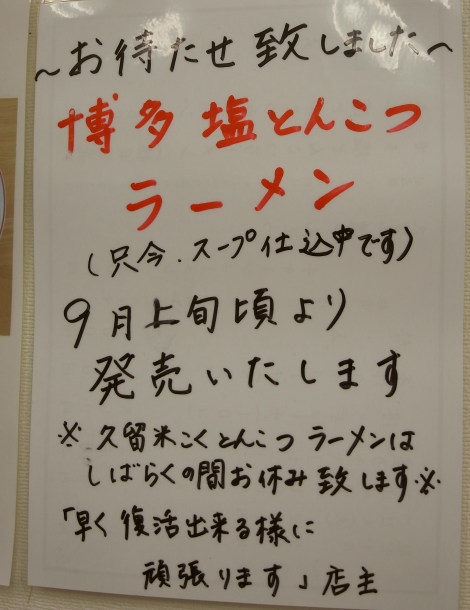 ～お待たせ致しました～
博多塩とんこつ
ラーメン
(只今、スープ仕込中です)
9月上旬頃より
発売いたします
※久留米こくとんこつラーメンは
しばらくの間お休み致します※
「早く復活出来る様に
頑張ります」店主